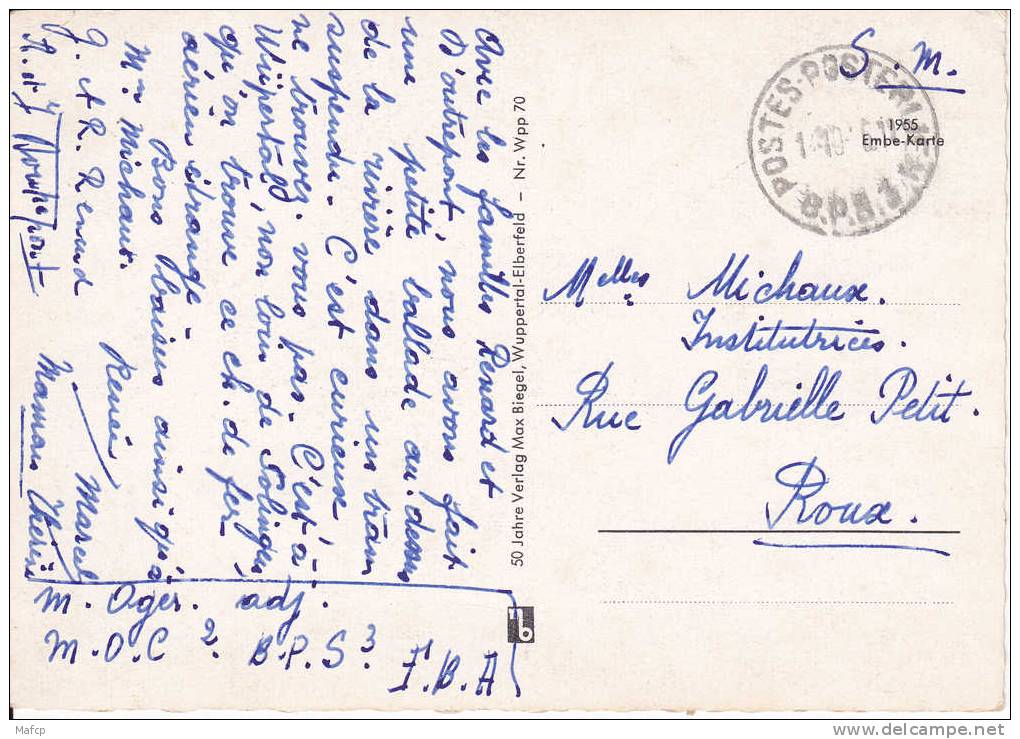 Avec les familles Renard et
D'outrepont, nous avons fait
une petite ballade au-dessus
de la rivière dans un tram
suspendu. C'est curieux,
ne trouvez-vous pas. C'est à
Wuppertal, non loin de Solingen
qu'on trouve ce ch. de fer
aérien étrange.
Bons baisers ainsi qu'à
Mr Michaux.
Renée Marcel
J. et R. Renard
Maman Thérèse
50 Jahre Verlag Max Biegel, Wuppertal-Elberfeld – Nr. Wpp 70
M. Oger. adj.
M.O.C 2. B.P.S 3.
F.B.A
S.M.
POSTES-POSTERIJ
B.P.S.
1955
Embe-Karte
Melles Michaux.
Institutrices.
Rue Gabrielle Petit.
Roux.
Mafcp
www.delcampe.net